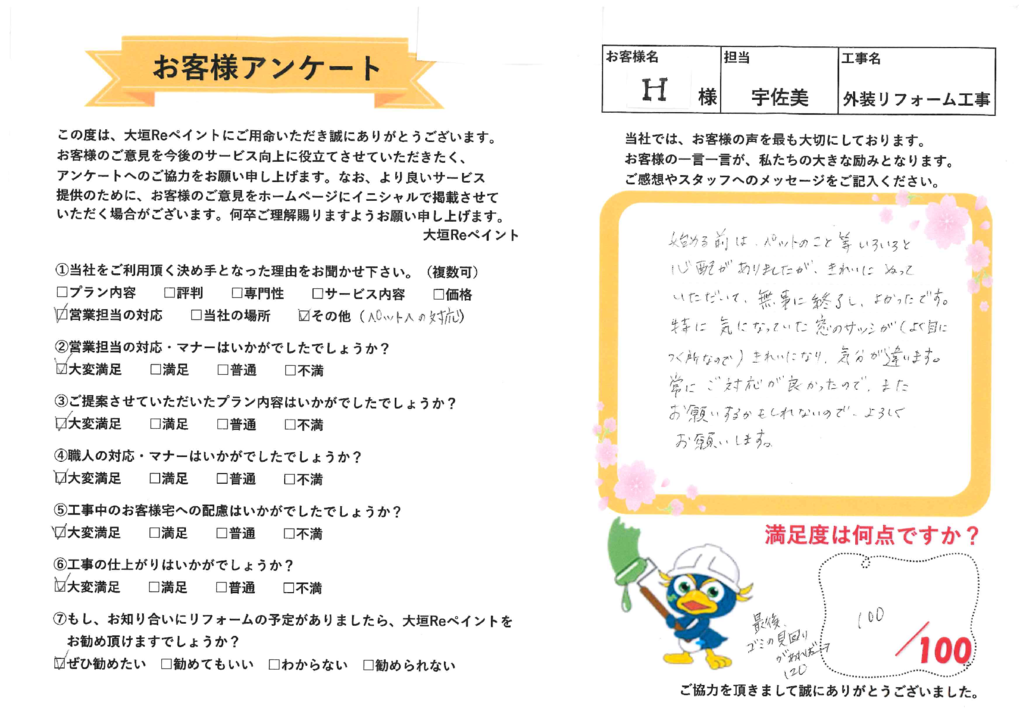 お客様アンケート
この度は、大垣Reペイントにご用命いただき誠にありがとうございます。
お客様のご意見を今後のサービス向上に役立てさせていただきたく、
アンケートへのご協力をお願い申し上げます。なお、より良いサービス
提供のために、お客様のご意見をホームページにイニシャルで掲載させて
いただく場合がございます。何卒ご理解賜りますようお願い申し上げます。
大垣Reペイント
①当社をご利用頂く決め手となった理由をお聞かせ下さい。（複数可）
□プラン内容 □評判 □専門性 □サービス内容 □価格
☑営業担当の対応 □当社の場所 ☑その他（ペット人の対応）
②営業担当の対応・マナーはいかがでしたでしょうか？
☑大変満足 □満足 □普通 □不満
③ご提案させていただいたプラン内容はいかがでしたでしょうか？
☑大変満足 □満足 □普通 □不満
④職人の対応・マナーはいかがでしたでしょうか？
☑大変満足 □満足 □普通 □不満
⑤工事中のお客様宅への配慮はいかがでしたでしょうか？
☑大変満足 □満足 □普通 □不満
⑥工事の仕上がりはいかがでしょうか？
☑大変満足 □満足 □普通 □不満
⑦もし、お知り合いにリフォームの予定がありましたら、大垣Reペイントを
お勧め頂けますでしょうか？
☑ぜひ勧めたい □勧めてもいい □わからない □勧められない
お客様名 担当 工事名
H 様 宇佐美 外装リフォーム工事
当社では、お客様の声を最も大切にしております。
お客様の一言一言が、私たちの大きな励みとなります。
ご感想やスタッフへのメッセージをご記入ください。
始める前は、ペットのこと等いろいろと
心配がありましたが、きれいにぬって
いただいて、無事に終了し、よかったです。
特に気になっていた窓のサッシが（よく目に
つく所なので）きれいになり、気分が違います。
常にご対応が良かったので、また
お願いするかもしれないので、よろしく
お願いします。
満足度は何点ですか？
100
／100
最後、
ゴミの見回り
があれば→
120
ご協力を頂きまして誠にありがとうございました。